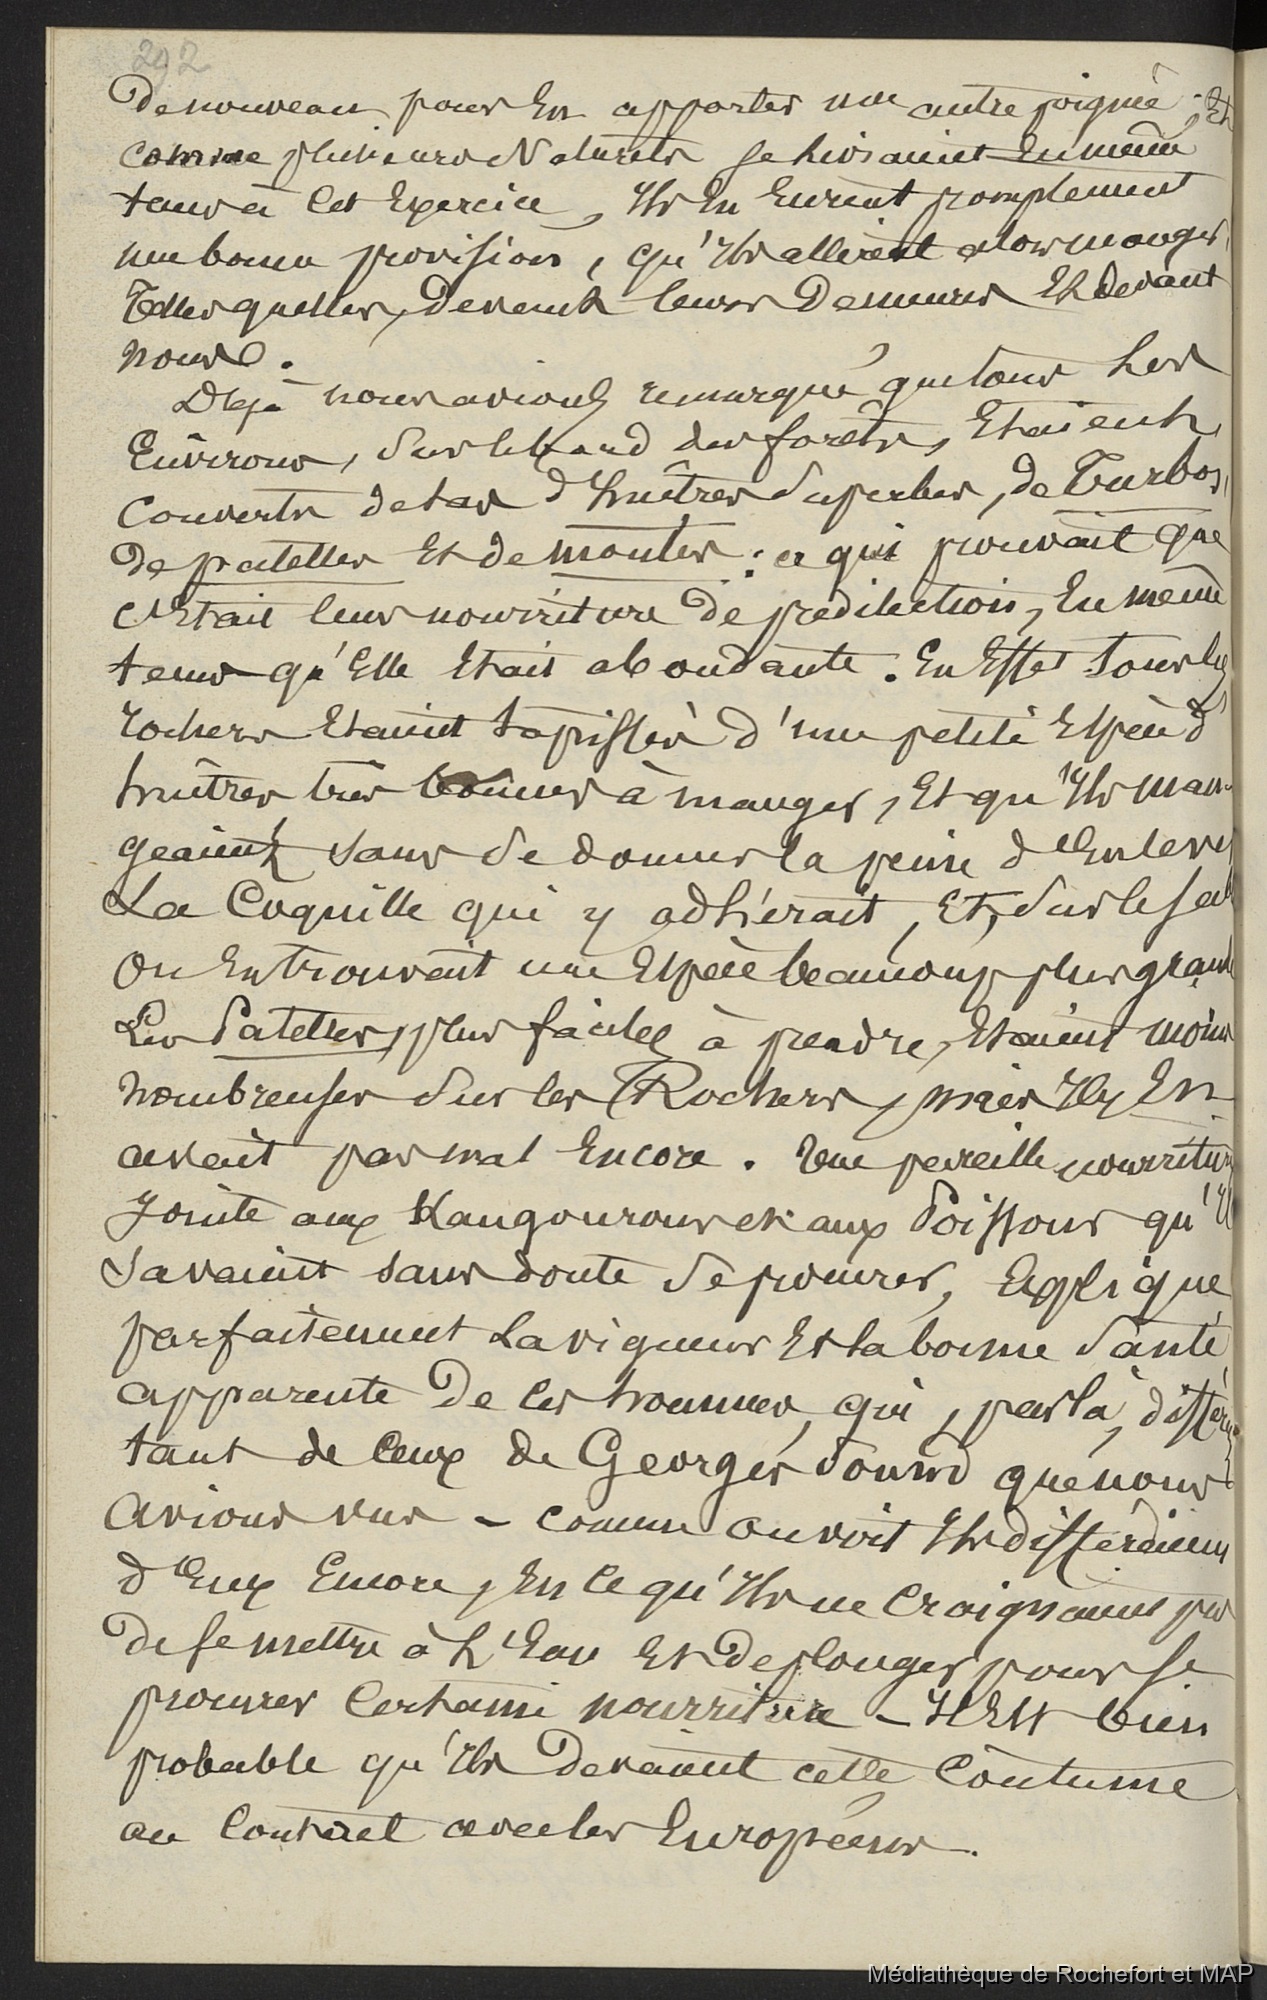 292
De nouveau pour En apporter une autre poignée ; Et
comme plusieurs Naturels se livraient En même
tems à Cet Exercice, Ils En Eurent promptement
une bonne provision, qu'Ils allèrent alors manger,
Telles quelles, Devant leurs Demeures Et devant
nous.
Déjà nous avions remarqué que tous Les
Environs, Sur le bord des forêts, Etaient
Couverts de tas d'huîtres Superbes, de Turbos,
De patelles Et de moules : ce qui prouvait que
C'Etait leur nourriture De prédilection, En même
tems qu'Elle Etait abondante. En Effet tous les
rochers Etaient tapissés d'une petite Espèce d'
huîtres très bonnes à manger, Et qu'Ils man-
geaient sans Se donner la peine d'Enlever
La Coquille qui y adhérait, Et, Sur le sable
On En trouvait une Espèce beaucoup plus grande
Les Patelles, plus faciles à prendre, Etaient moins
Nombreuses Sur les Rochers, mais Il y En
avait pas mal Encore. Une pareille nourriture
Jointe aux Kangourous et aux Poissons qu'Ils
Savaient sans doute Se procurer, Explique
parfaitement La vigueur Et la bonne Santé
apparente De ces hommes, qui, par là, différaient
tant de Ceux de Georges Sound que nous
Avions vus - comme on voit Ils différaient
d'Eux Encore, En Ce qu'Ils ne Craignaient pas
De se mettre à L'Eau Et De plonger pour se
procurer Certaine nourriture - Il Est bien
probable qu'Ils Devaient cette Coutume
au Contact avec les Européens.
Médiathèque de Rochefort et MAP